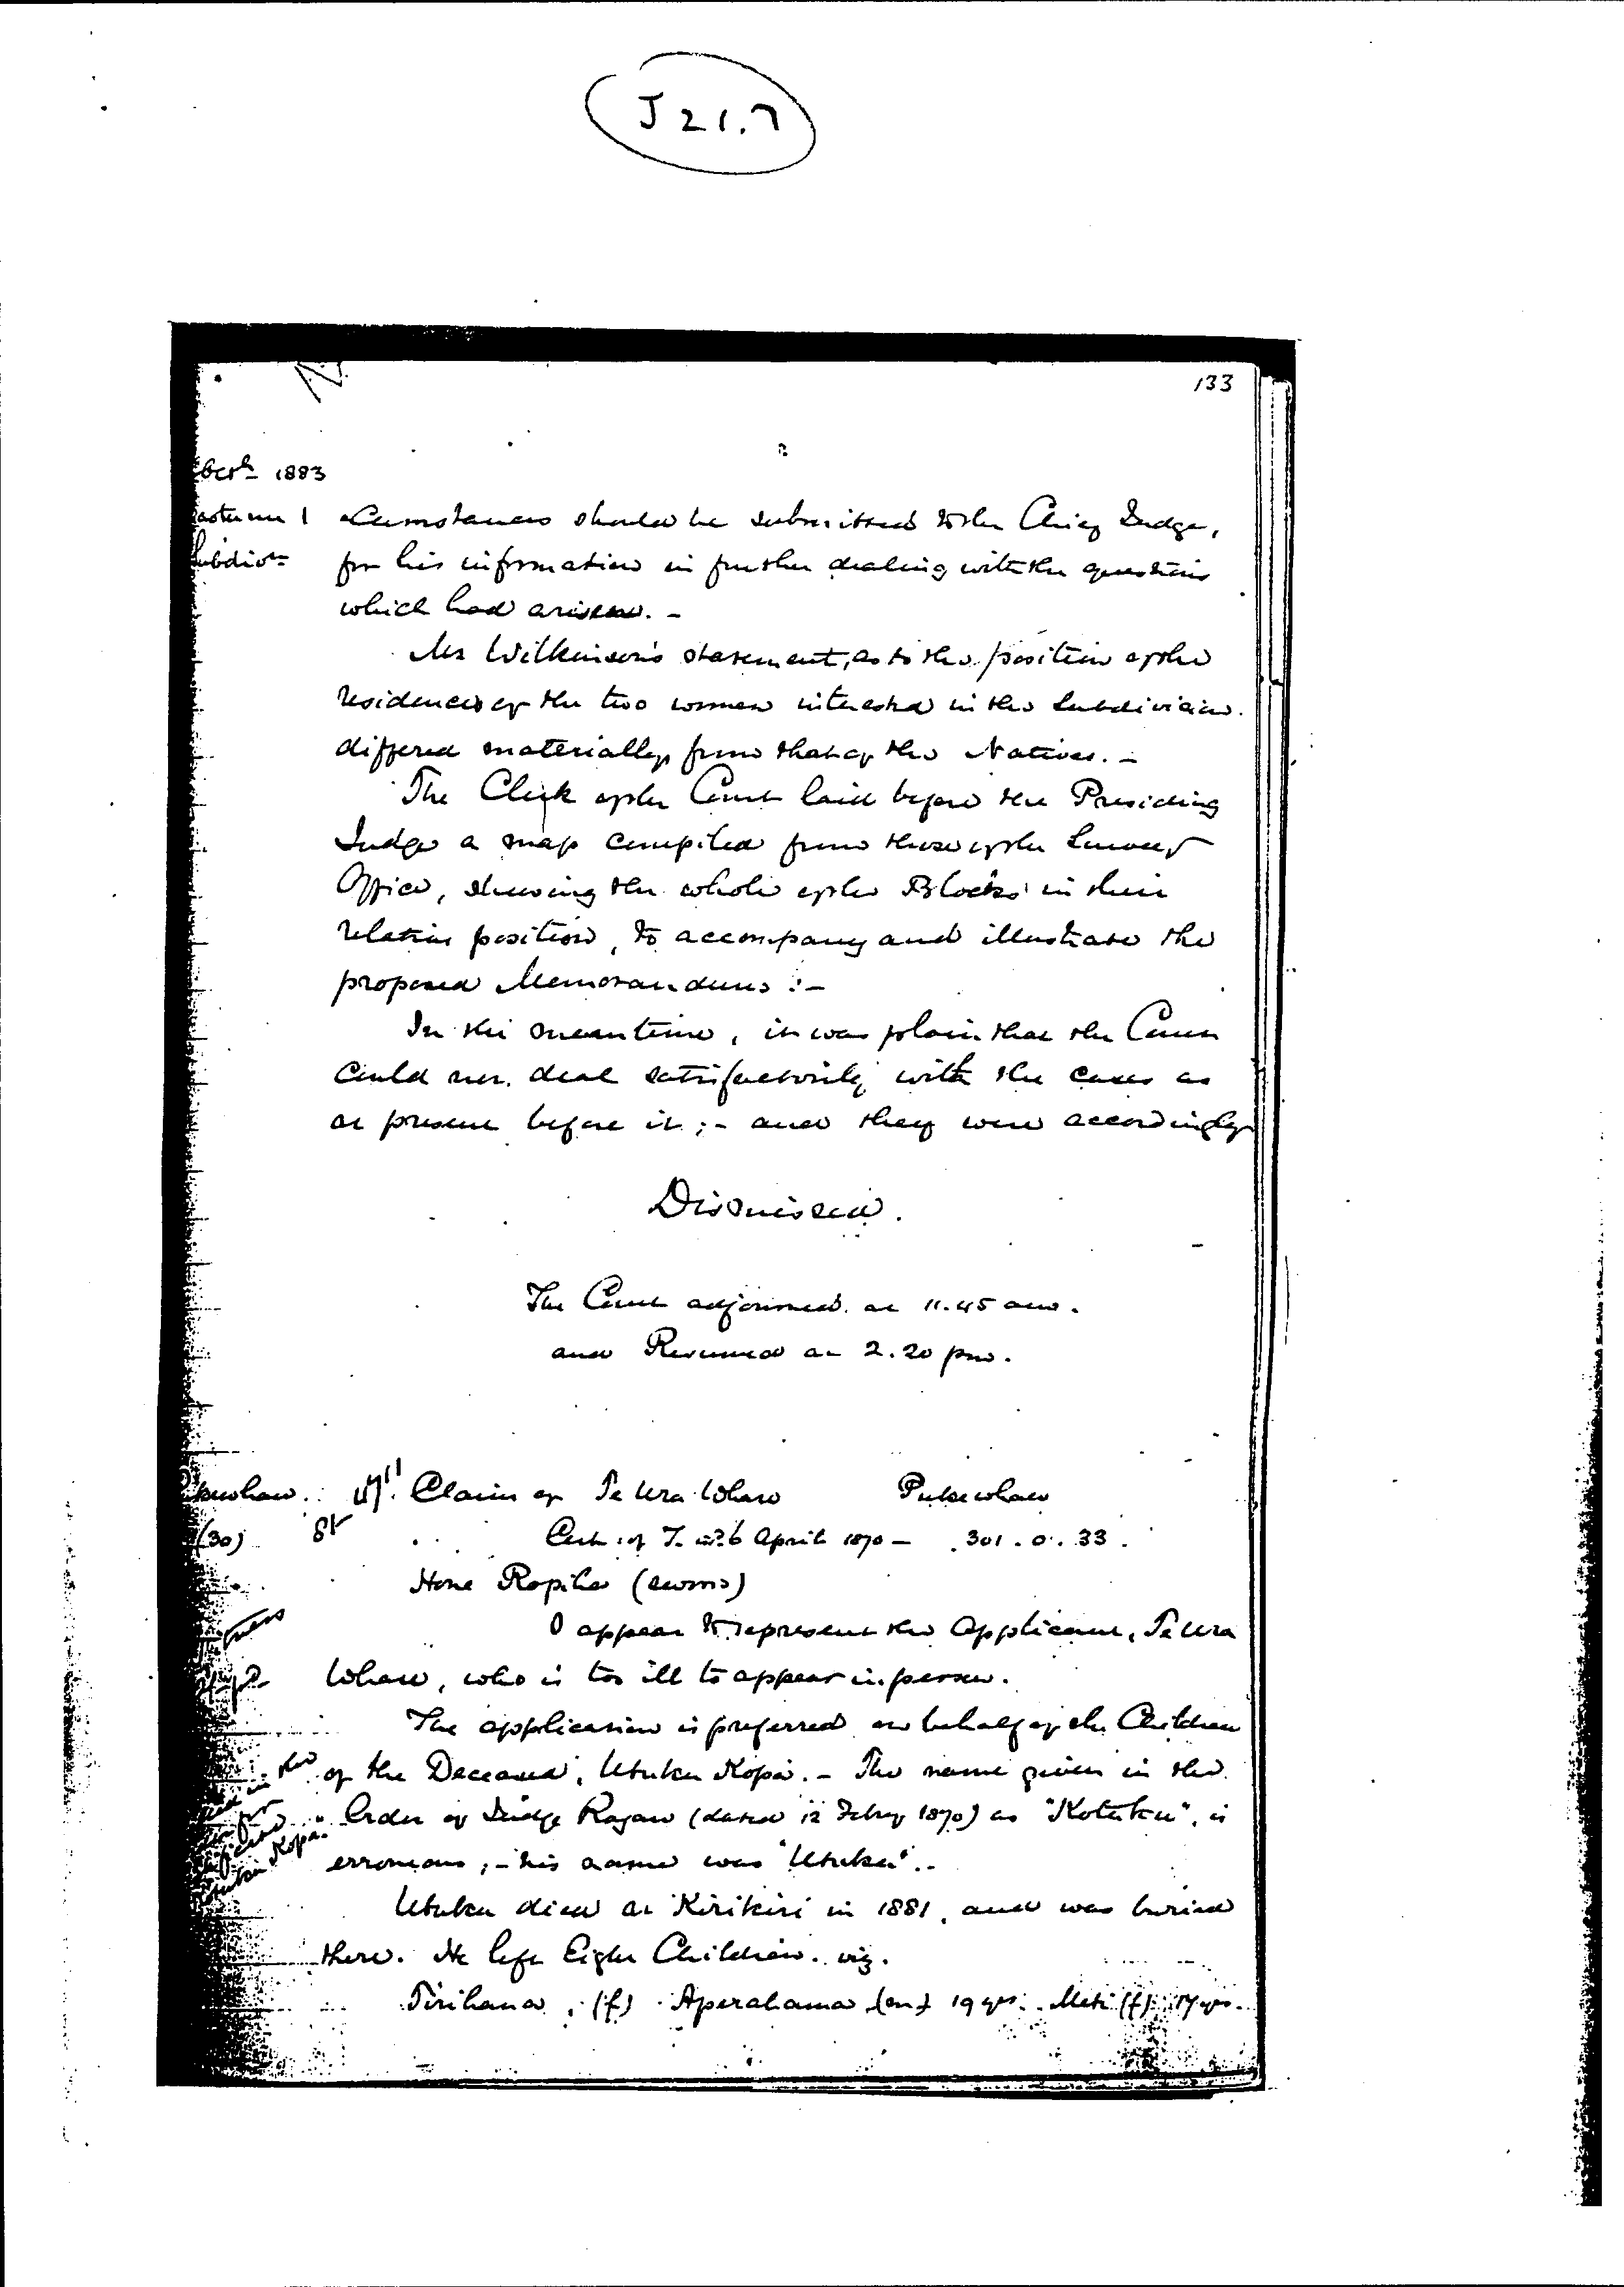 J 21.7
133
1883
Circumstances should be submitted to the Chief Judge,
for his information in further dealing with the questions
which had arisen. -
Mr Wilkinson's statement, as to the position of the
residences of the two women interested in the Subdivision
differed materially from that of the Natives. -
The Clerk of the Court laid before the Presiding
Judge a map compiled from those of the Survey
Office, shewing the whole of the Blocks in their
relative position, to accompany and illustrate the
proposed Memorandum :-
In the meantime, it was plain that the Court
could not deal satisfactorily with the cases as
at present before it ; - and they were accordingly
Dismissed.
The Court adjourned at 11.45 am.
and Resumed at 2.20 pm.
Claim of Te Ura Whao Pukewhau
(30) Cert: of T. 6 April 1870 - 301 . 0 . 33 .
Hone Ropiha (sworn)
I appear to represent the Applicant, Te Ura
Whao, who is too ill to appear in person.
The application is preferred on behalf of the Children
of the Deceased, Utuku Kopa. - The name given in the
Order of Judge Rogan (dated 12 Feby 1870) as "Kotuku", is
erroneous ; - his name was "Utuku".
Utuku died at Kirikiri in 1881, and was buried
there. He left Eight Children. viz.
Tirihana, (f) . Aperahama (m) 19 yrs. Meti (f) 17 yrs.